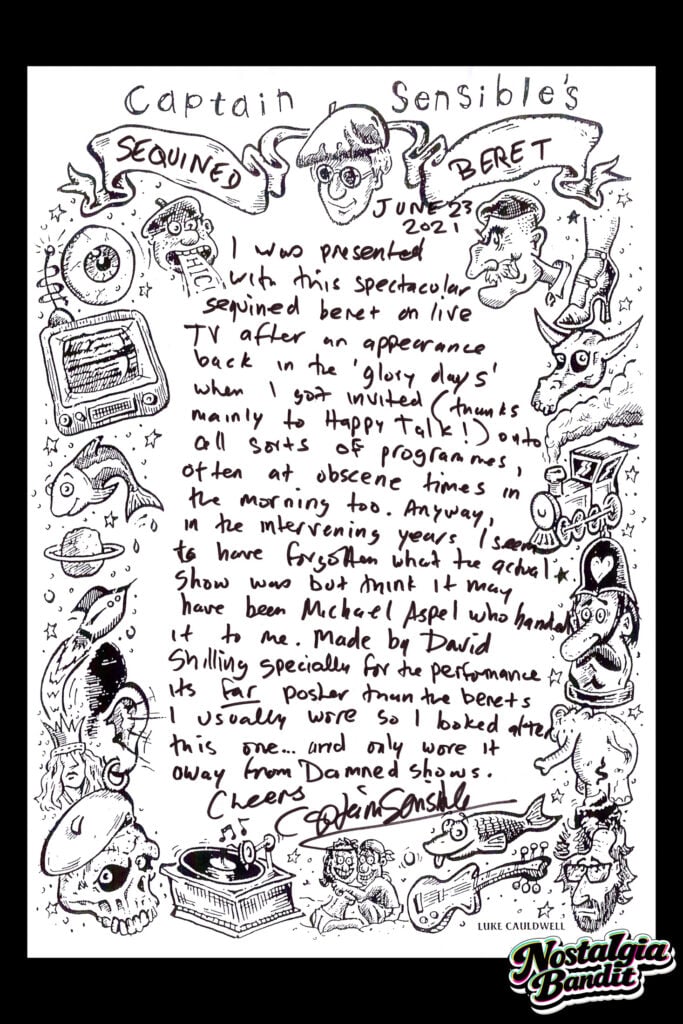 Captain Sensible's
SEQUINED BERET
JUNE 23
2021
HIC
I was presented
with this spectacular
sequined beret on live
TV after an appearance
back in the 'glory days'
when I got invited (thanks
mainly to Happy Talk!) onto
all sorts of programmes,
often at obscene times in
the morning too. Anyway,
in the intervening years I seem
to have forgotten what the actual
show was but think it may
have been Michael Aspel who handed
it to me. Made by David
Shilling specially for the performance
its far posher than the berets
I usually wore so I looked after
this one... and only wore it
away from Damned shows.
Cheers
Captain Sensible
LUKE CAULDWELL
Nostalgia
Bandit